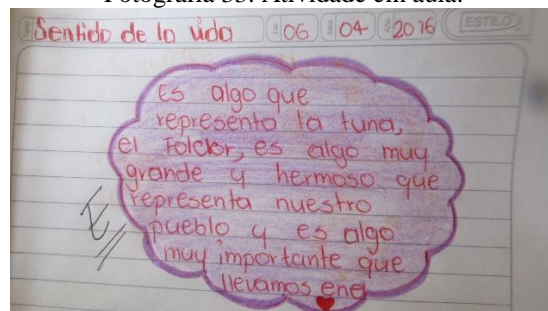 Fotografia 33: Atividade em aula.
Sentido de la vida Día 06 Mes 04 Año 2016 ESTILO
Es algo que
representa la tuna,
el Folclor, es algo muy
grande y hermoso que
representa nuestro
pueblo y es algo
muy importante que
llevamos en el
E